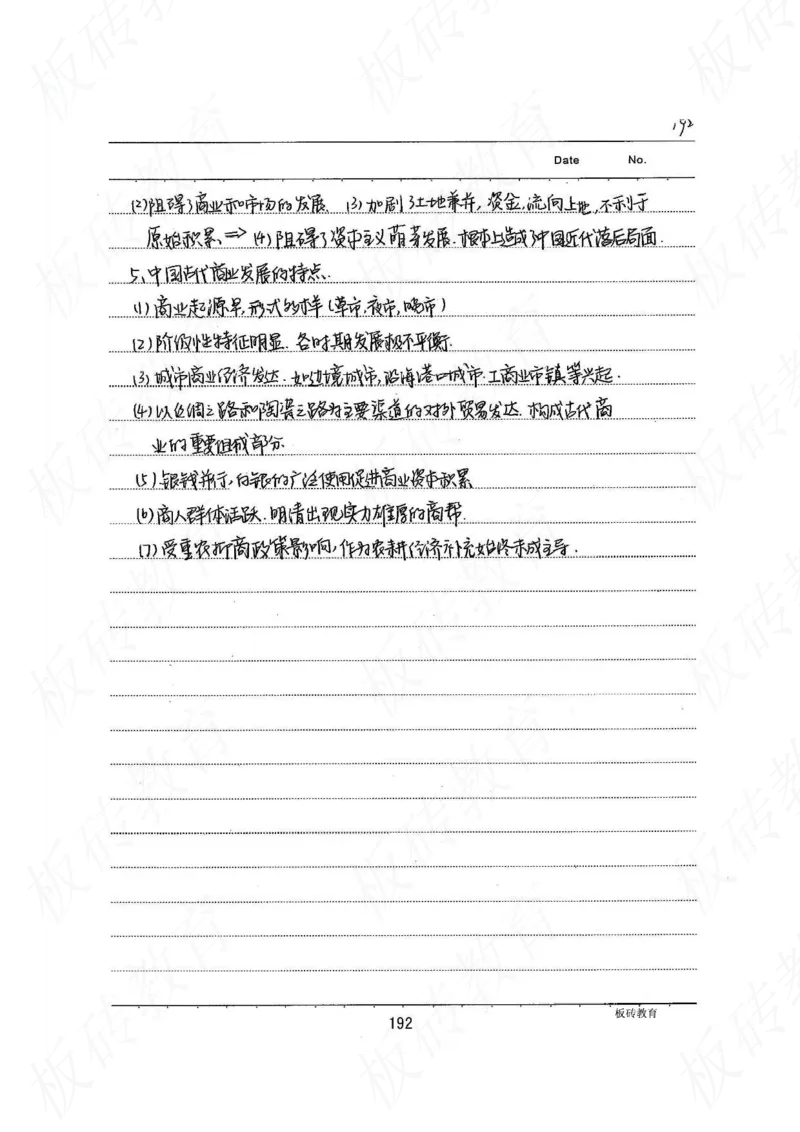 192
Date No.
(2)阻碍了商业和市场的发展. (3)加剧了土地兼并, 资金, 流向土地, 不利于
原始积累、=> (4)阻碍了资本主义萌芽发展. 根本上造成了中国近代落后局面.
5、中国古代商业发展的特点、
(1)商业起源早, 形式多样(草市, 夜市, 晓市)
(2)阶段性特征明显. 各时期发展极不平衡.
(3)城市商业经济发达. 如边境城市, 沿海港口城市. 工商业市镇等兴起.
(4)以丝绸之路和陶瓷之路为主要渠道的对外贸易发达. 构成古代商
业的重要组成部分.
(5)银钱并行, 白银的广泛使用促进商业资本积累
(6)商人群体活跃. 明清出现实力雄厚的商帮.
(7)受重农抑商政策影响, 作为农耕经济补充始终未成主导.
192
板砖教育